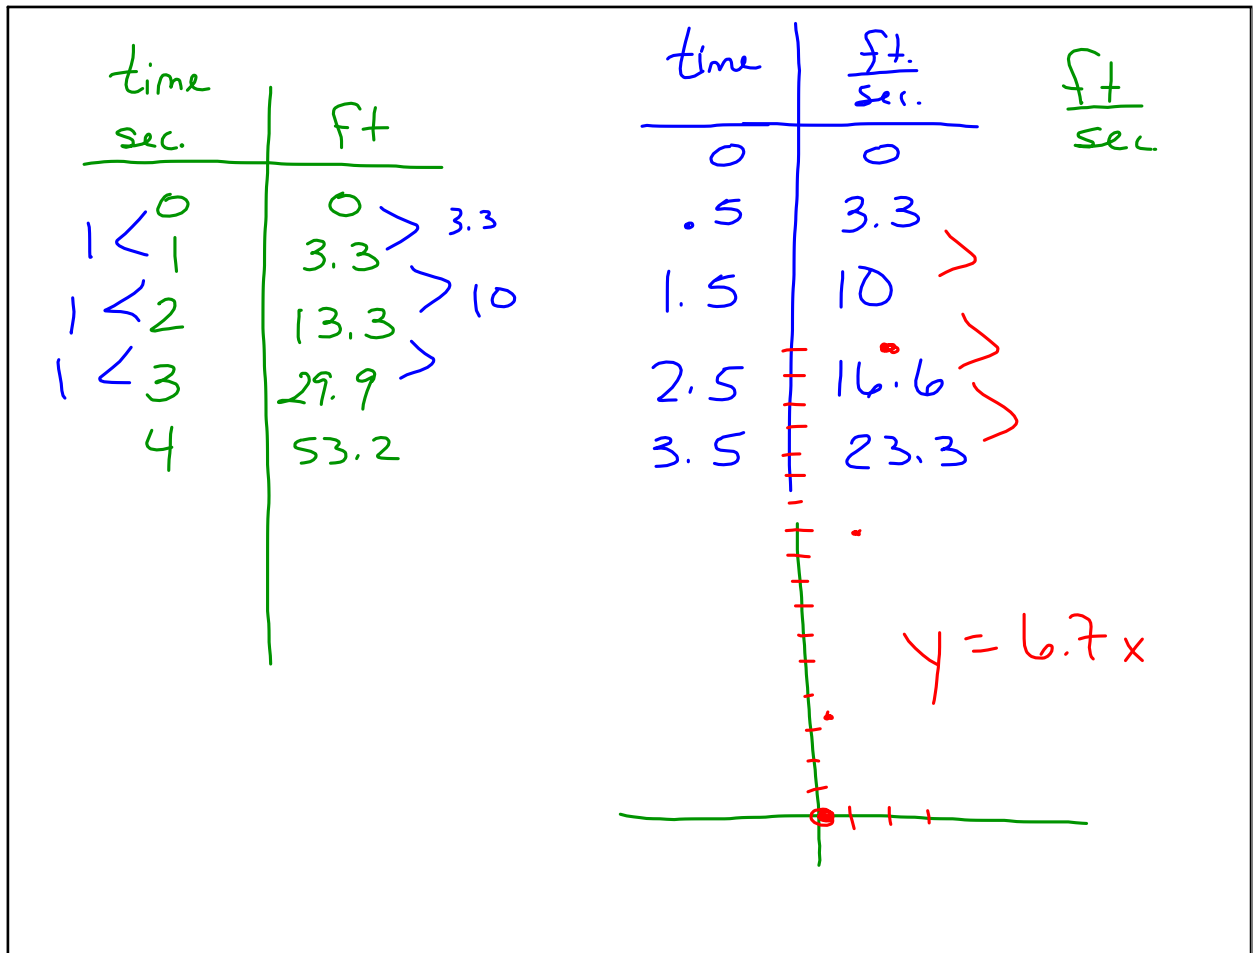 time
sec. ft
0 0
1 3.3
2 13.3
3 29.9
4 53.2
1 <
1 <
1 <
> 3.3
> 10
>
time ft./sec.
0 0
.5 3.3
1.5 10
2.5 16.6
3.5 23.3
>
>
>
ft/sec.
y = 6.7x